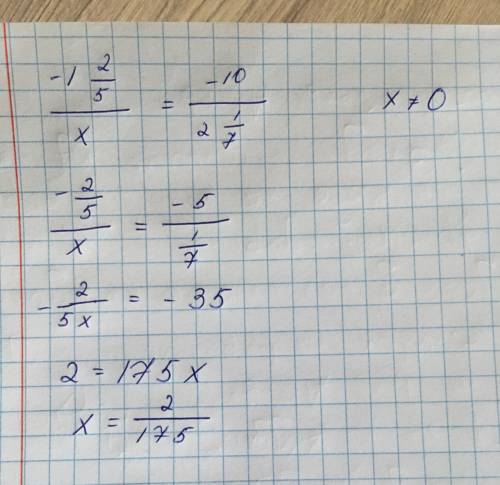 -1 2/5 / x = -10 / 2 1/7 x ≠ 0
-2/5 / x = -5 / 1/7
-2/5x = -35
2 = 175x
x = 2/175